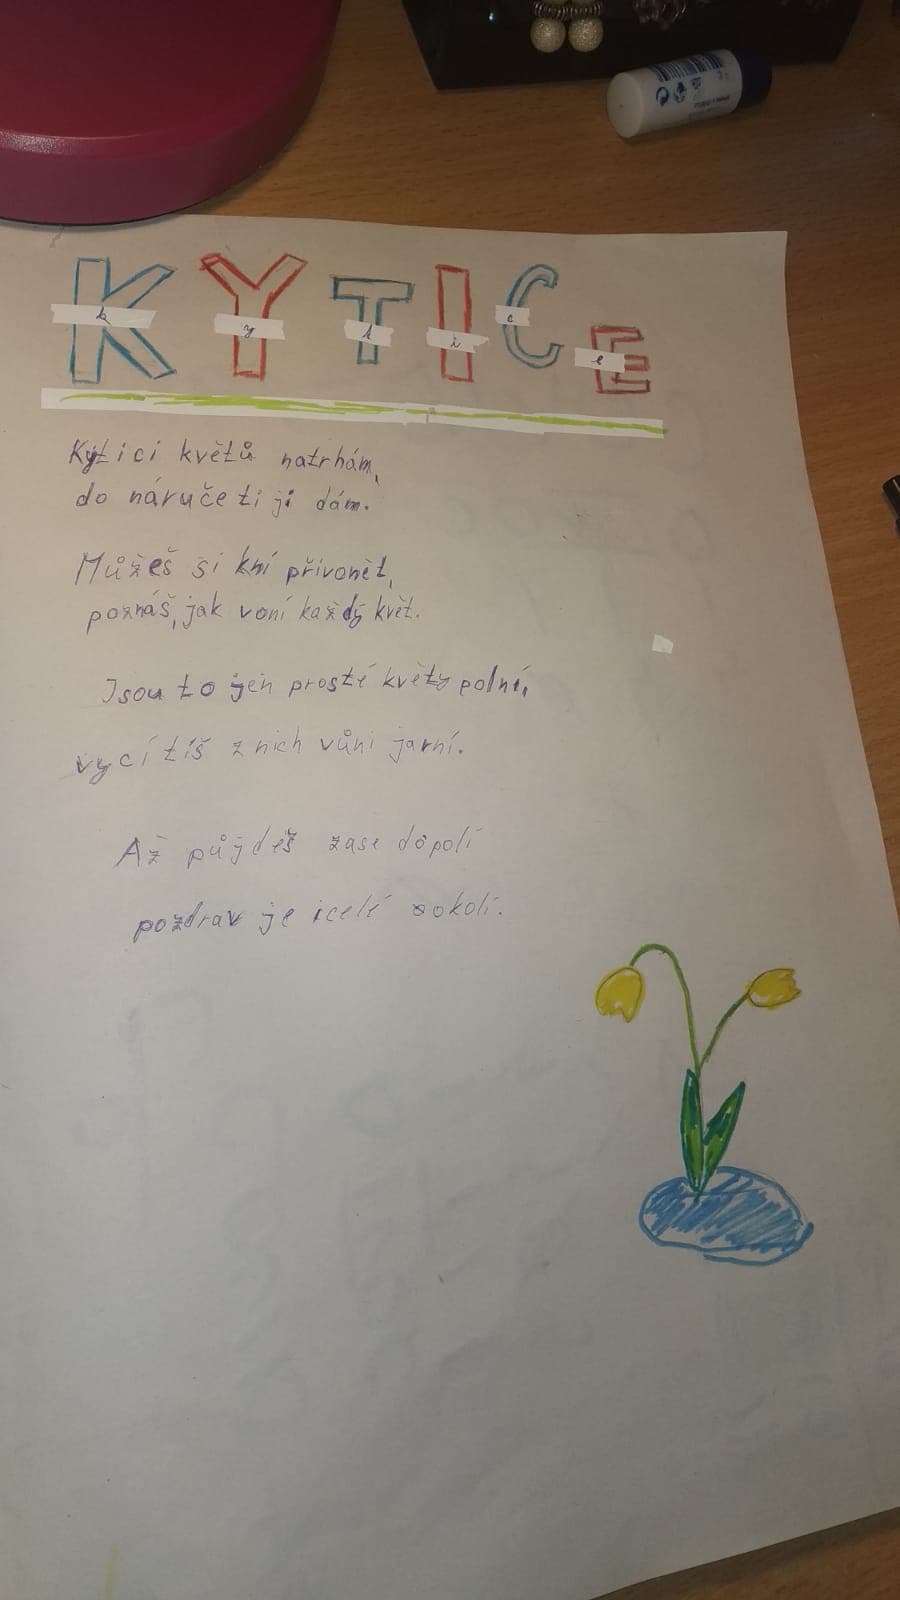 KYTICE
k y t i c e
Kytici květů natrhám,
do náruče ti ji dám.
Můžeš si kní přivonět,
poznáš, jak voní každý květ.
Jsou to jen prosté květy polní,
vycítíš z nich vůni jarní.
Až půjdeš zase dopolí
pozdrav je icelé okolí.